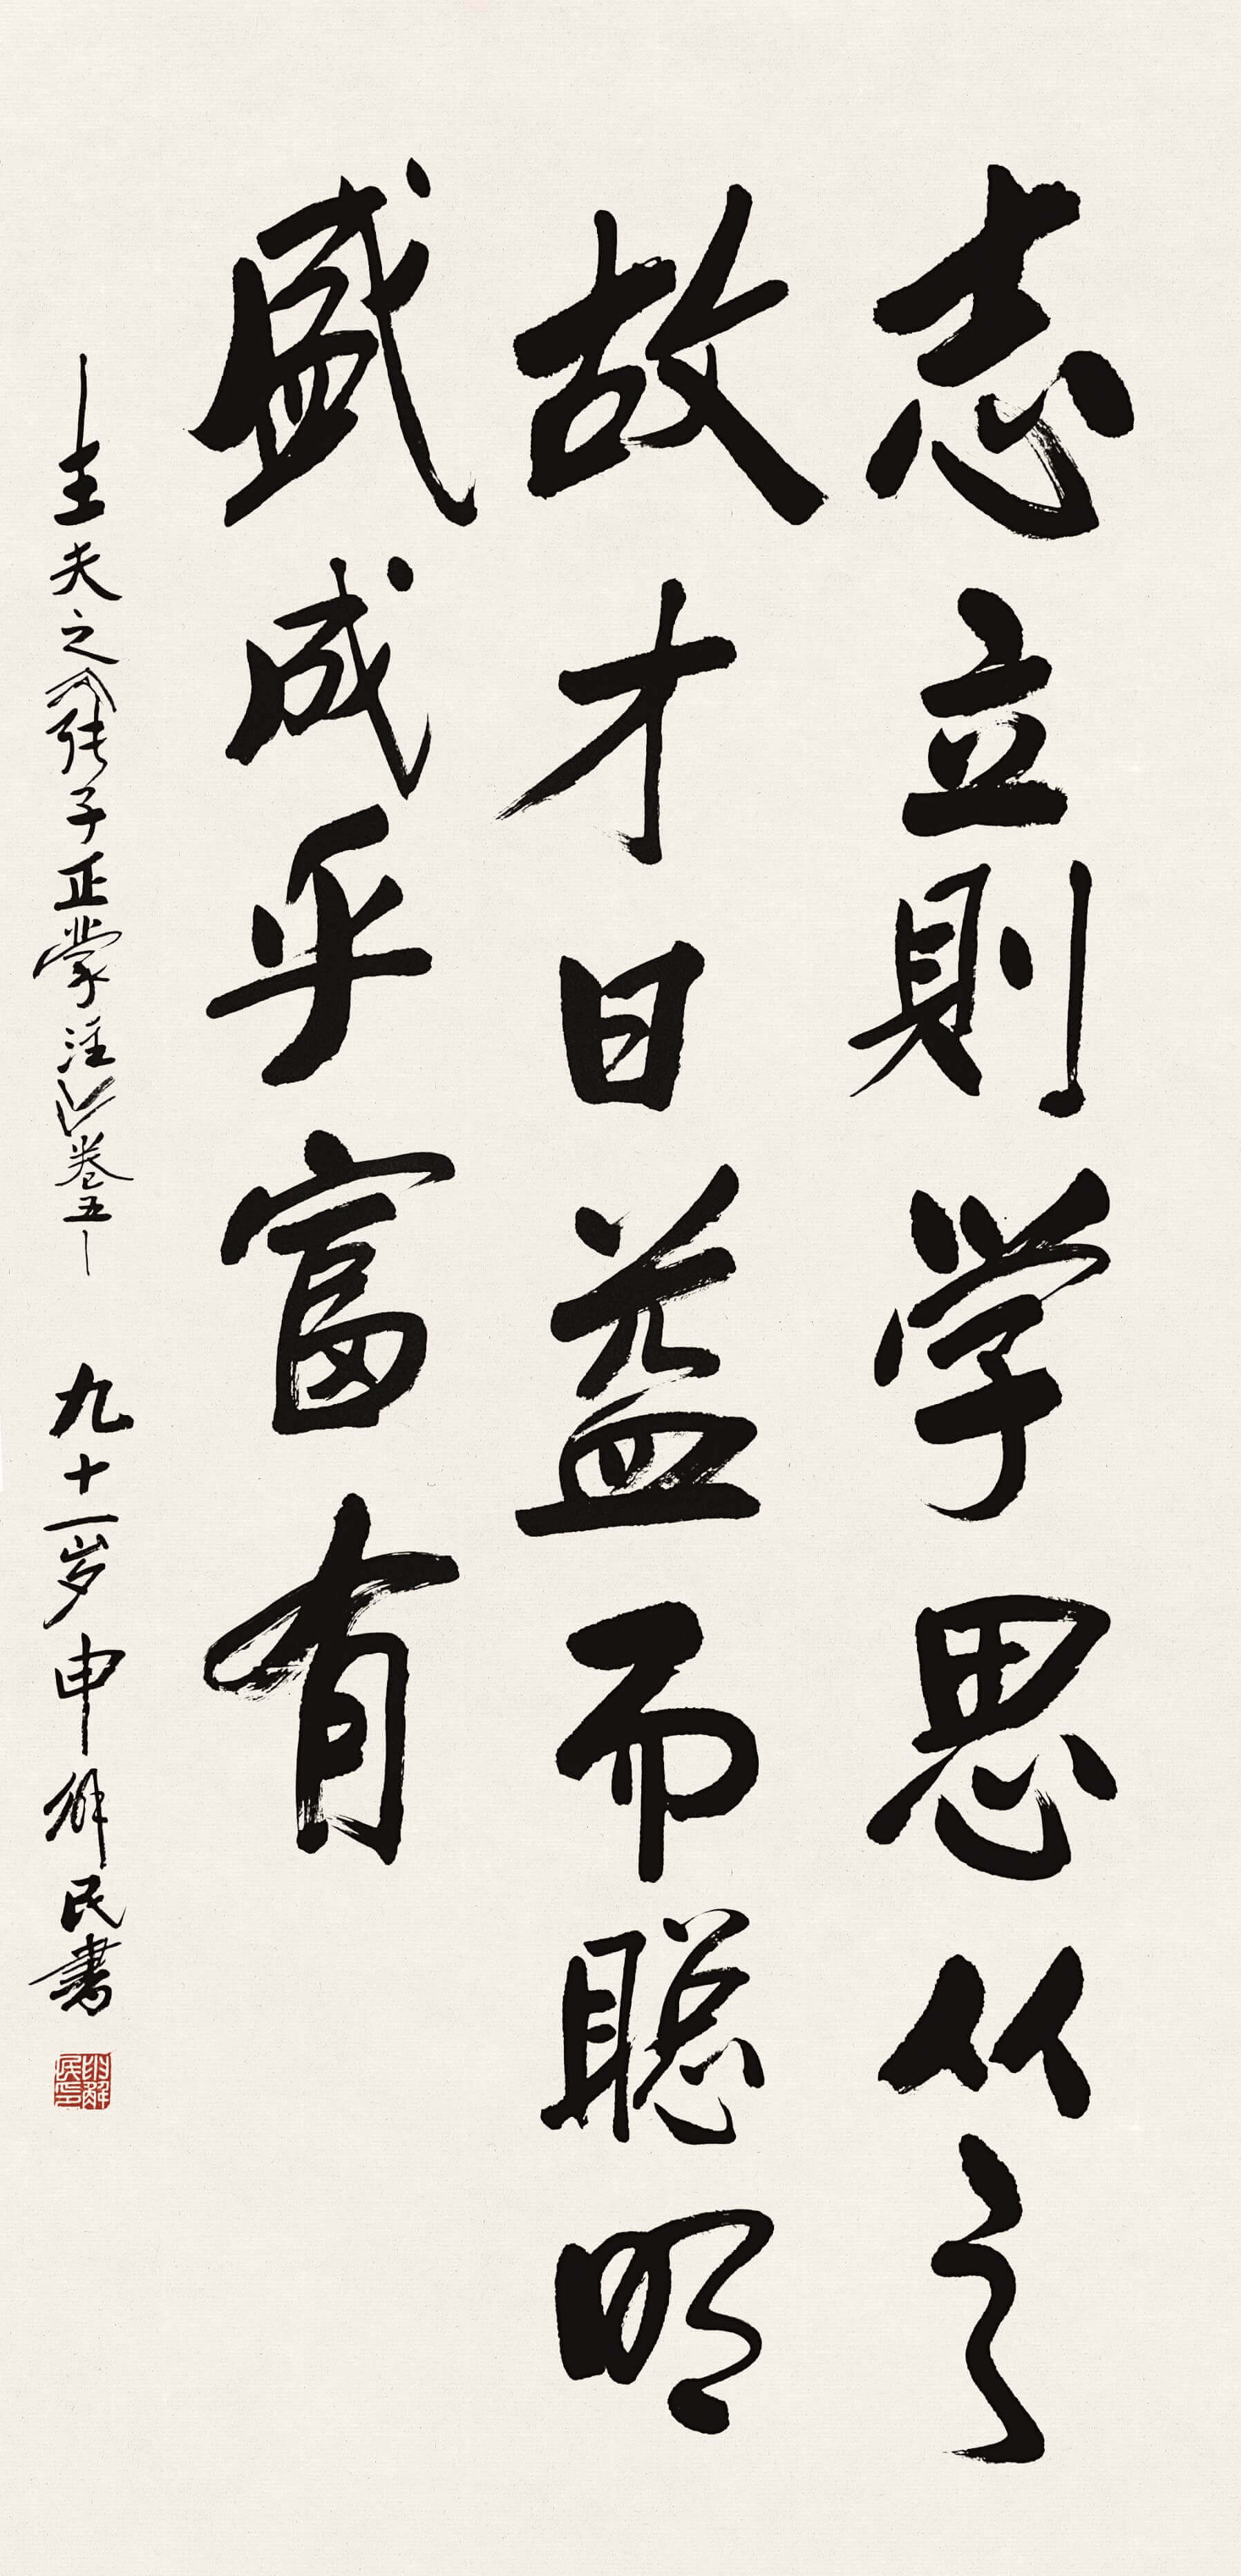 志立則学思从之
故才日益而聡明
盛成乎富有
—王夫之《张子正蒙注》卷五— 九十一岁申解民書
申解民印